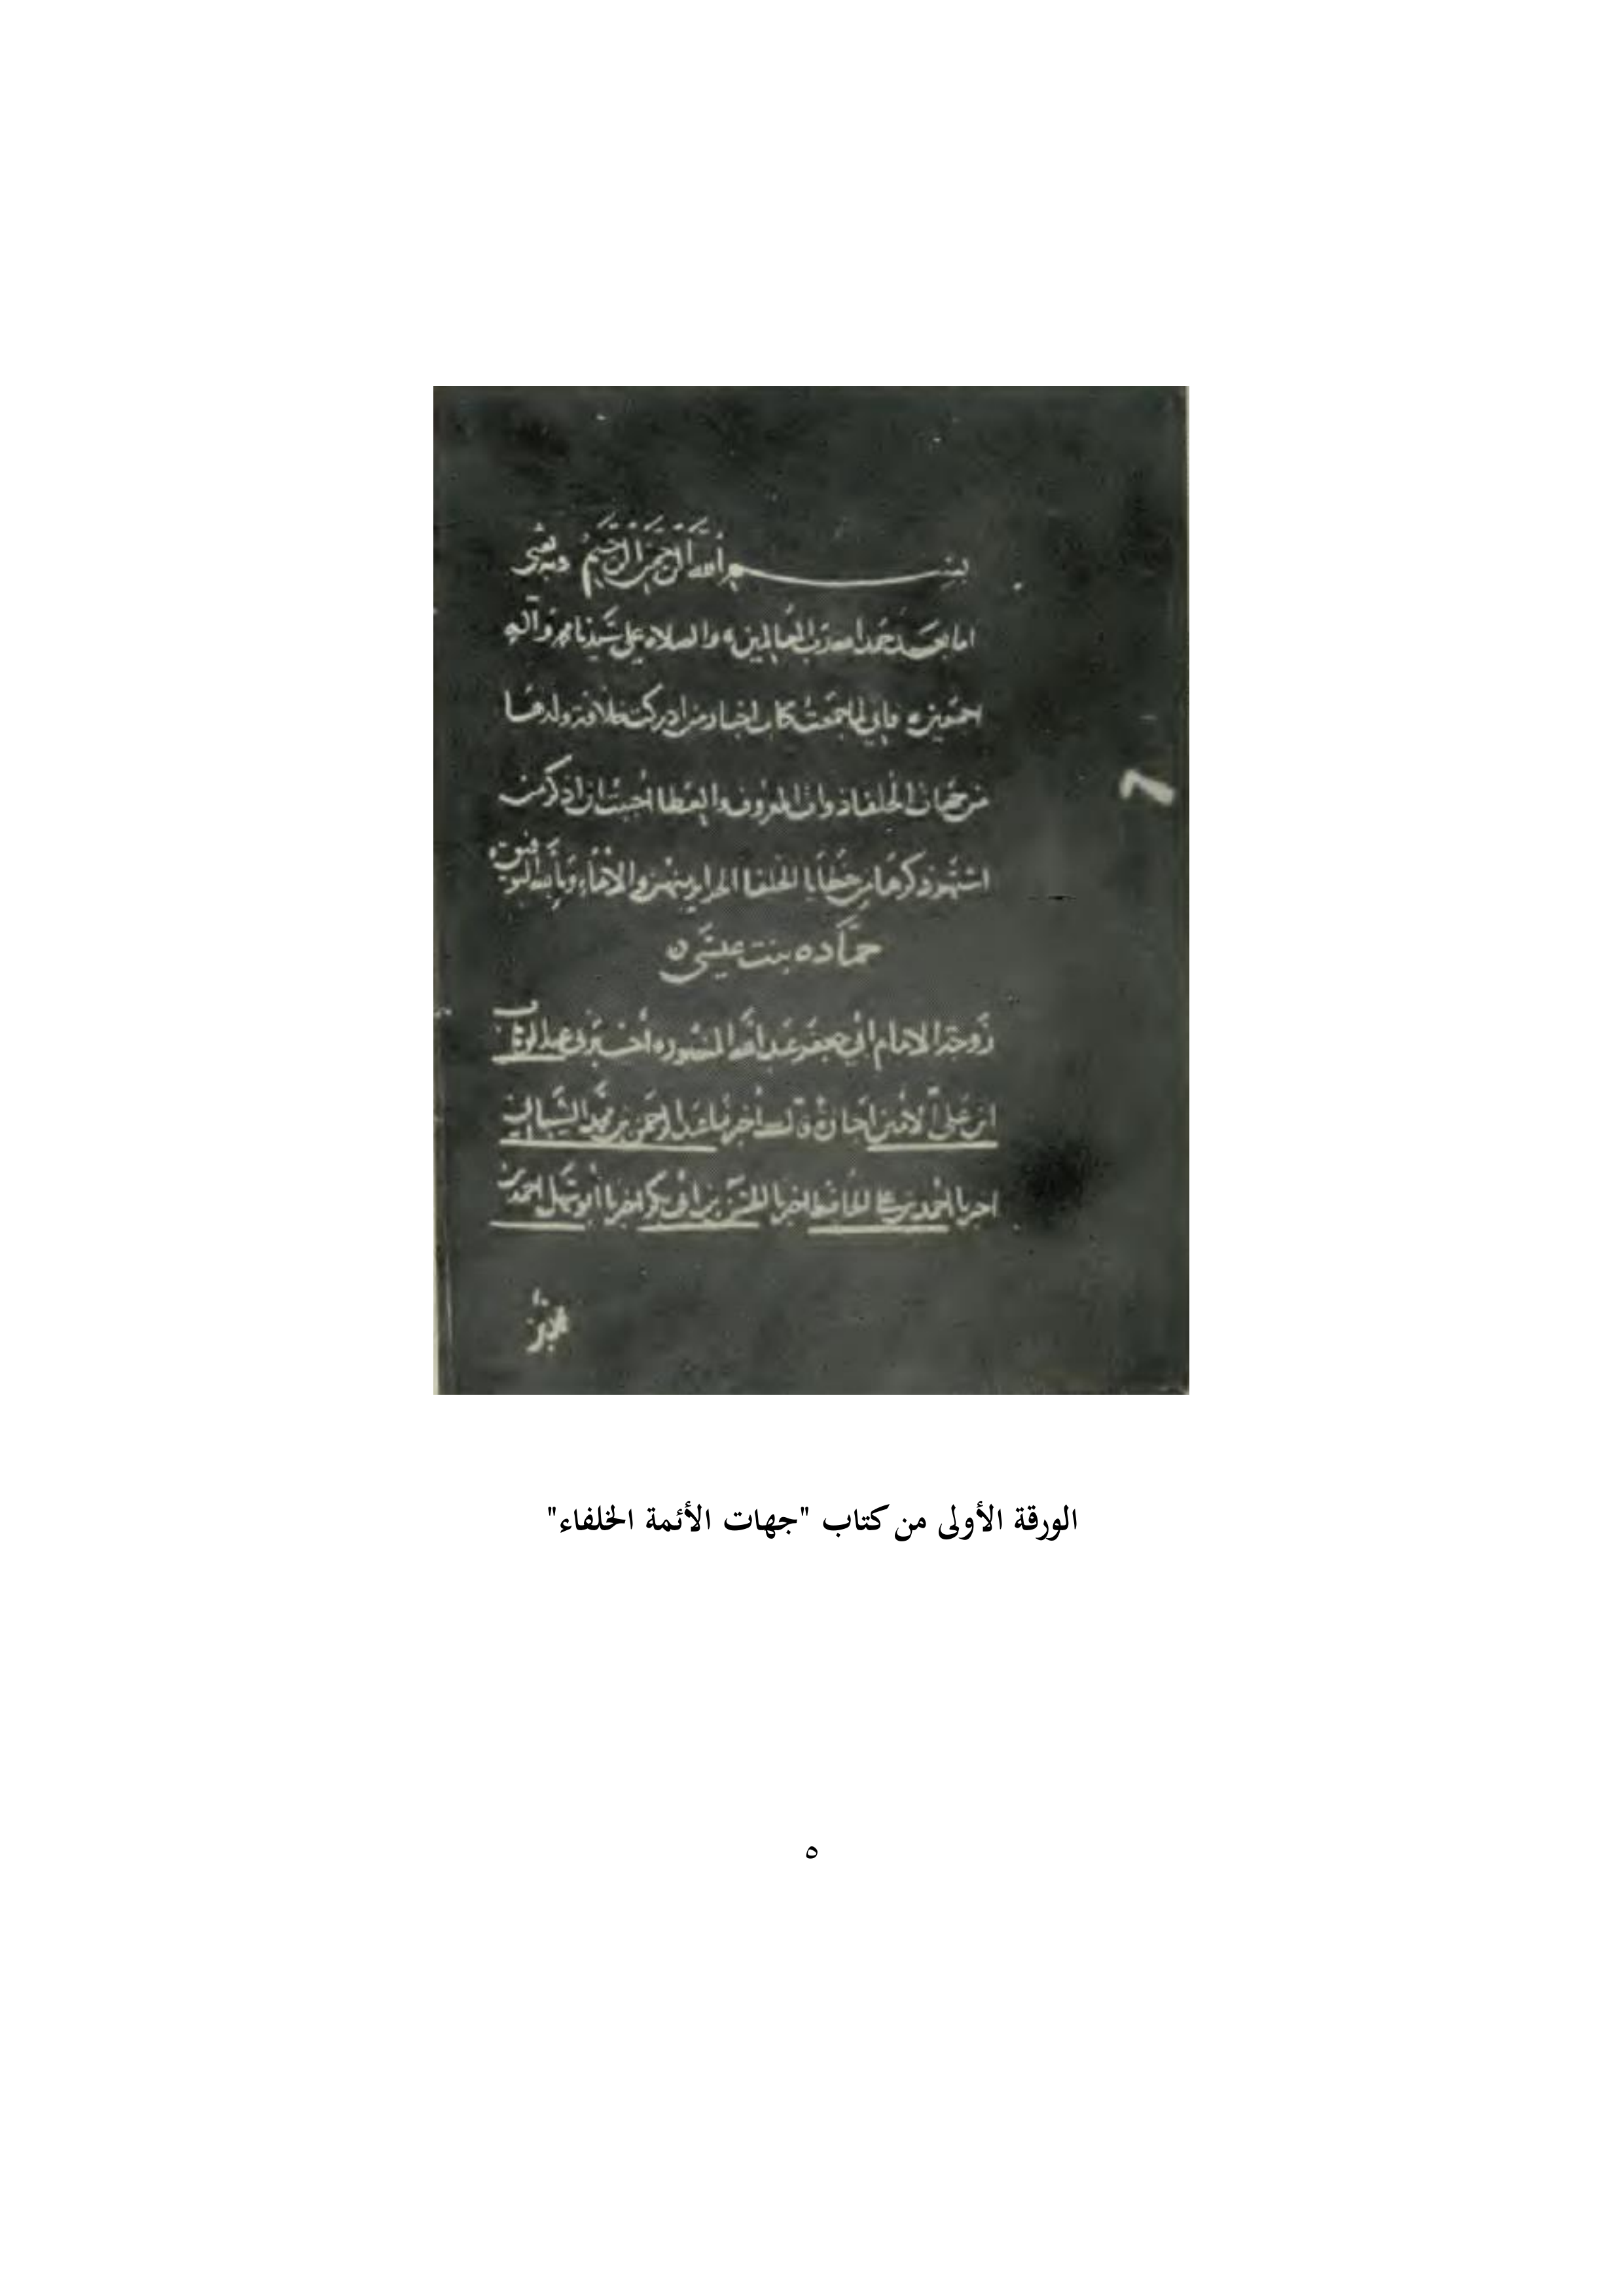 بسم الله الرحمن الرحيم وبه ثقتي
اما بعد حمدا لله رب العالمين والصلاه على سيدنا محمد وآله
اجمعين فاني لما جمعت كتاب اخبار من ادركت خلافة ولدها
من جهات الخلفا ذوات المعروف والعطا احببت ان اذكر من
اشتهر ذكرها من حظايا الخلفا الحراير منهن والاماء وبالله التوفيق
حماده بنت عيسى
زوجة الامام ابي جعفر عبد الله المنصور أخبرني عبد الوهاب
ابن علي الامين اجازة قال أخبرنا عبد الرحمن بن محمد الشيباني
اخبرنا أحمد بن علي الحافظ اخبرنا الحسن بن أبي بكر اخبرنا أبو سهل احمد بن
الورقة الأولى من كتاب "جهات الأئمة الخلفاء"
٥